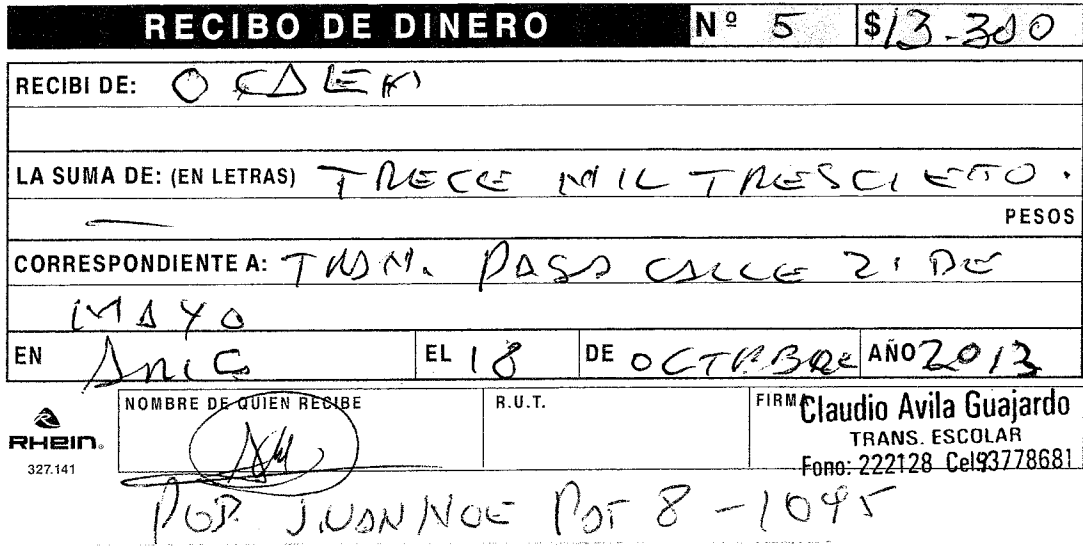 RECIBO DE DINERO Nº 5 $13.300
RECIBI DE: O CALEM
LA SUMA DE: (EN LETRAS) TRECE MIL TRESCIETO.
— PESOS
CORRESPONDIENTE A: PASO CALLE 21 DE
MAYO
EN EL 18 DE OCTUBRE AÑO 2013
NOMBRE DE QUIEN RECIBE R.U.T. FIRMA Claudio Avila Guajardo
RHEIN. TRANS. ESCOLAR
327.141 Fono: 222128 Cel.93778681
POB. JUAN NOE 8 - 1095